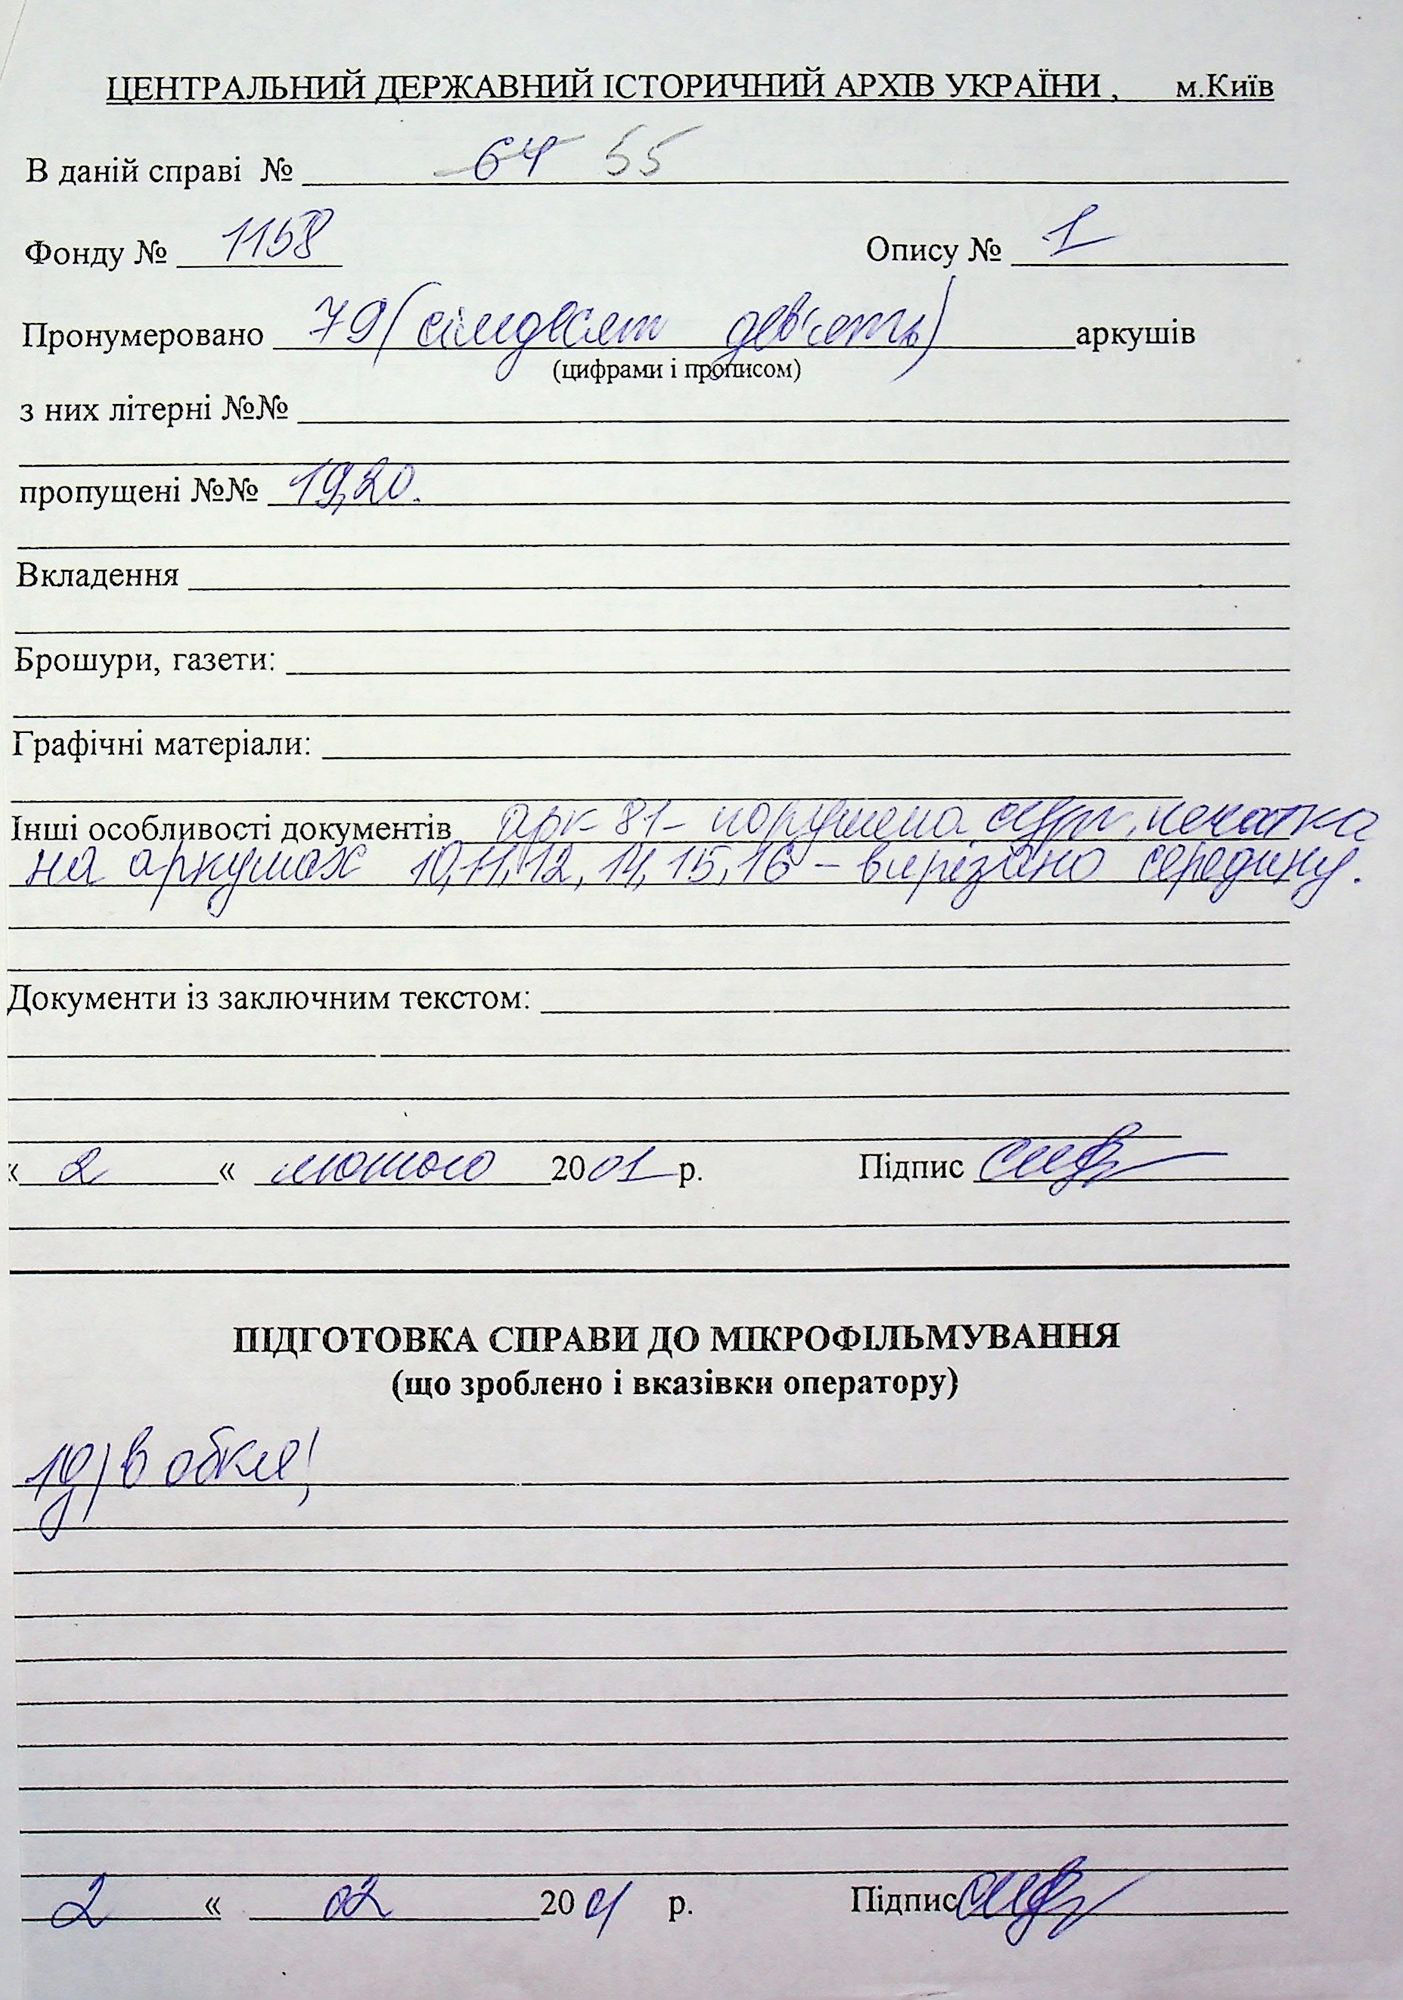 ЦЕНТРАЛЬНИЙ ДЕРЖАВНИЙ ІСТОРИЧНИЙ АРХІВ УКРАЇНИ, м.Київ
В даній справі № 64 55
Фонду № 1158 Опису № 1
Пронумеровано 79 (сімдесят дев'ять) аркушів
(цифрами і прописом)
з них літерні №№
пропущені №№ 19,20.
Вкладення
Брошури, газети:
Графічні матеріали:
Інші особливості документів арк 81 - порушена сург. печатка
на аркушах 10,11,12,14,15,16 – вирізано середину.
Документи із заключним текстом:
« 2 « лютого 2001 р. Підпис
ПІДГОТОВКА СПРАВИ ДО МІКРОФІЛЬМУВАННЯ
(що зроблено і вказівки оператору)
в обкл!
2 « 02 2001 р. Підпис